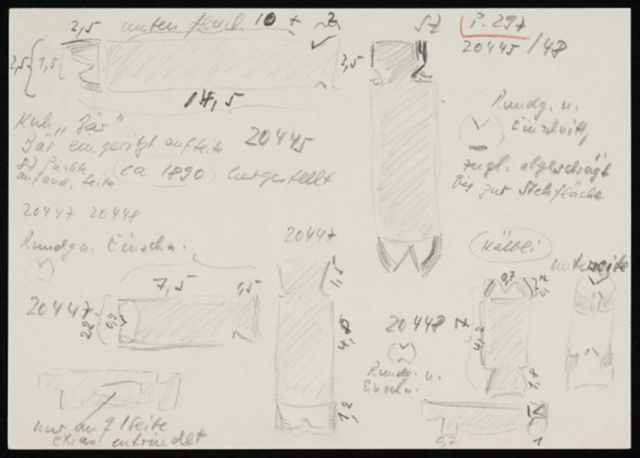 2,5 unten flach 10 + 2
SZ P. 297
20445 / 48
2,5 1,5
3,5
14,5
Rundg. u.
Einschnitt
Kuh „Bär"
Bär eingeritzt auf Seite 20445
ca 1890 hergestellt
auf and. Seite
zugl. abgeschrägt
bis zur Stehfläche
20447 20448
Rundg u. Einschn.
20447
Kälbli
Unterseite
7,5 1,5
1,5
0,7
20447
22
0,9
4,8
20448
4,2
Rundg. u.
Einschn.
1,8
1,2
nur auf 1 Seite
etwas entrindet
0,7
1